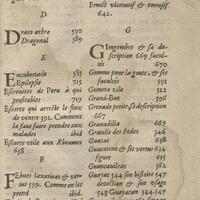 D
Draco arbre 590
Dragonal 589
E
Encubertado 585
Epilepsie 715
Escreutes de Peru à qui
profitables 719
Escorce qui arreste le flux
de ventre 592. Comment
la faut faire prendre aux
malades ibid
Escorce utile aux Rheumes
698
F
Febues laxatiues & ver-
tus 599. Comme on les
prend ibid.
Fruict vlceratif & corrosif
642.
G
Gingembre & sa de-
scription 669 facul-
tés 670
Gomme pour la goute. & ses
facultés 592
Gomera xile 522
Grand-Ben 596
Grenade petite. sa description
667
Granadilla 667
Groselle des Indes 546
Guacas 668
Guacatane & ses vertus 634
figure 635
Guancavilcas 562
Guayac 544 son histoire 547
decoction & son vsage
548 Guayacan 544.547